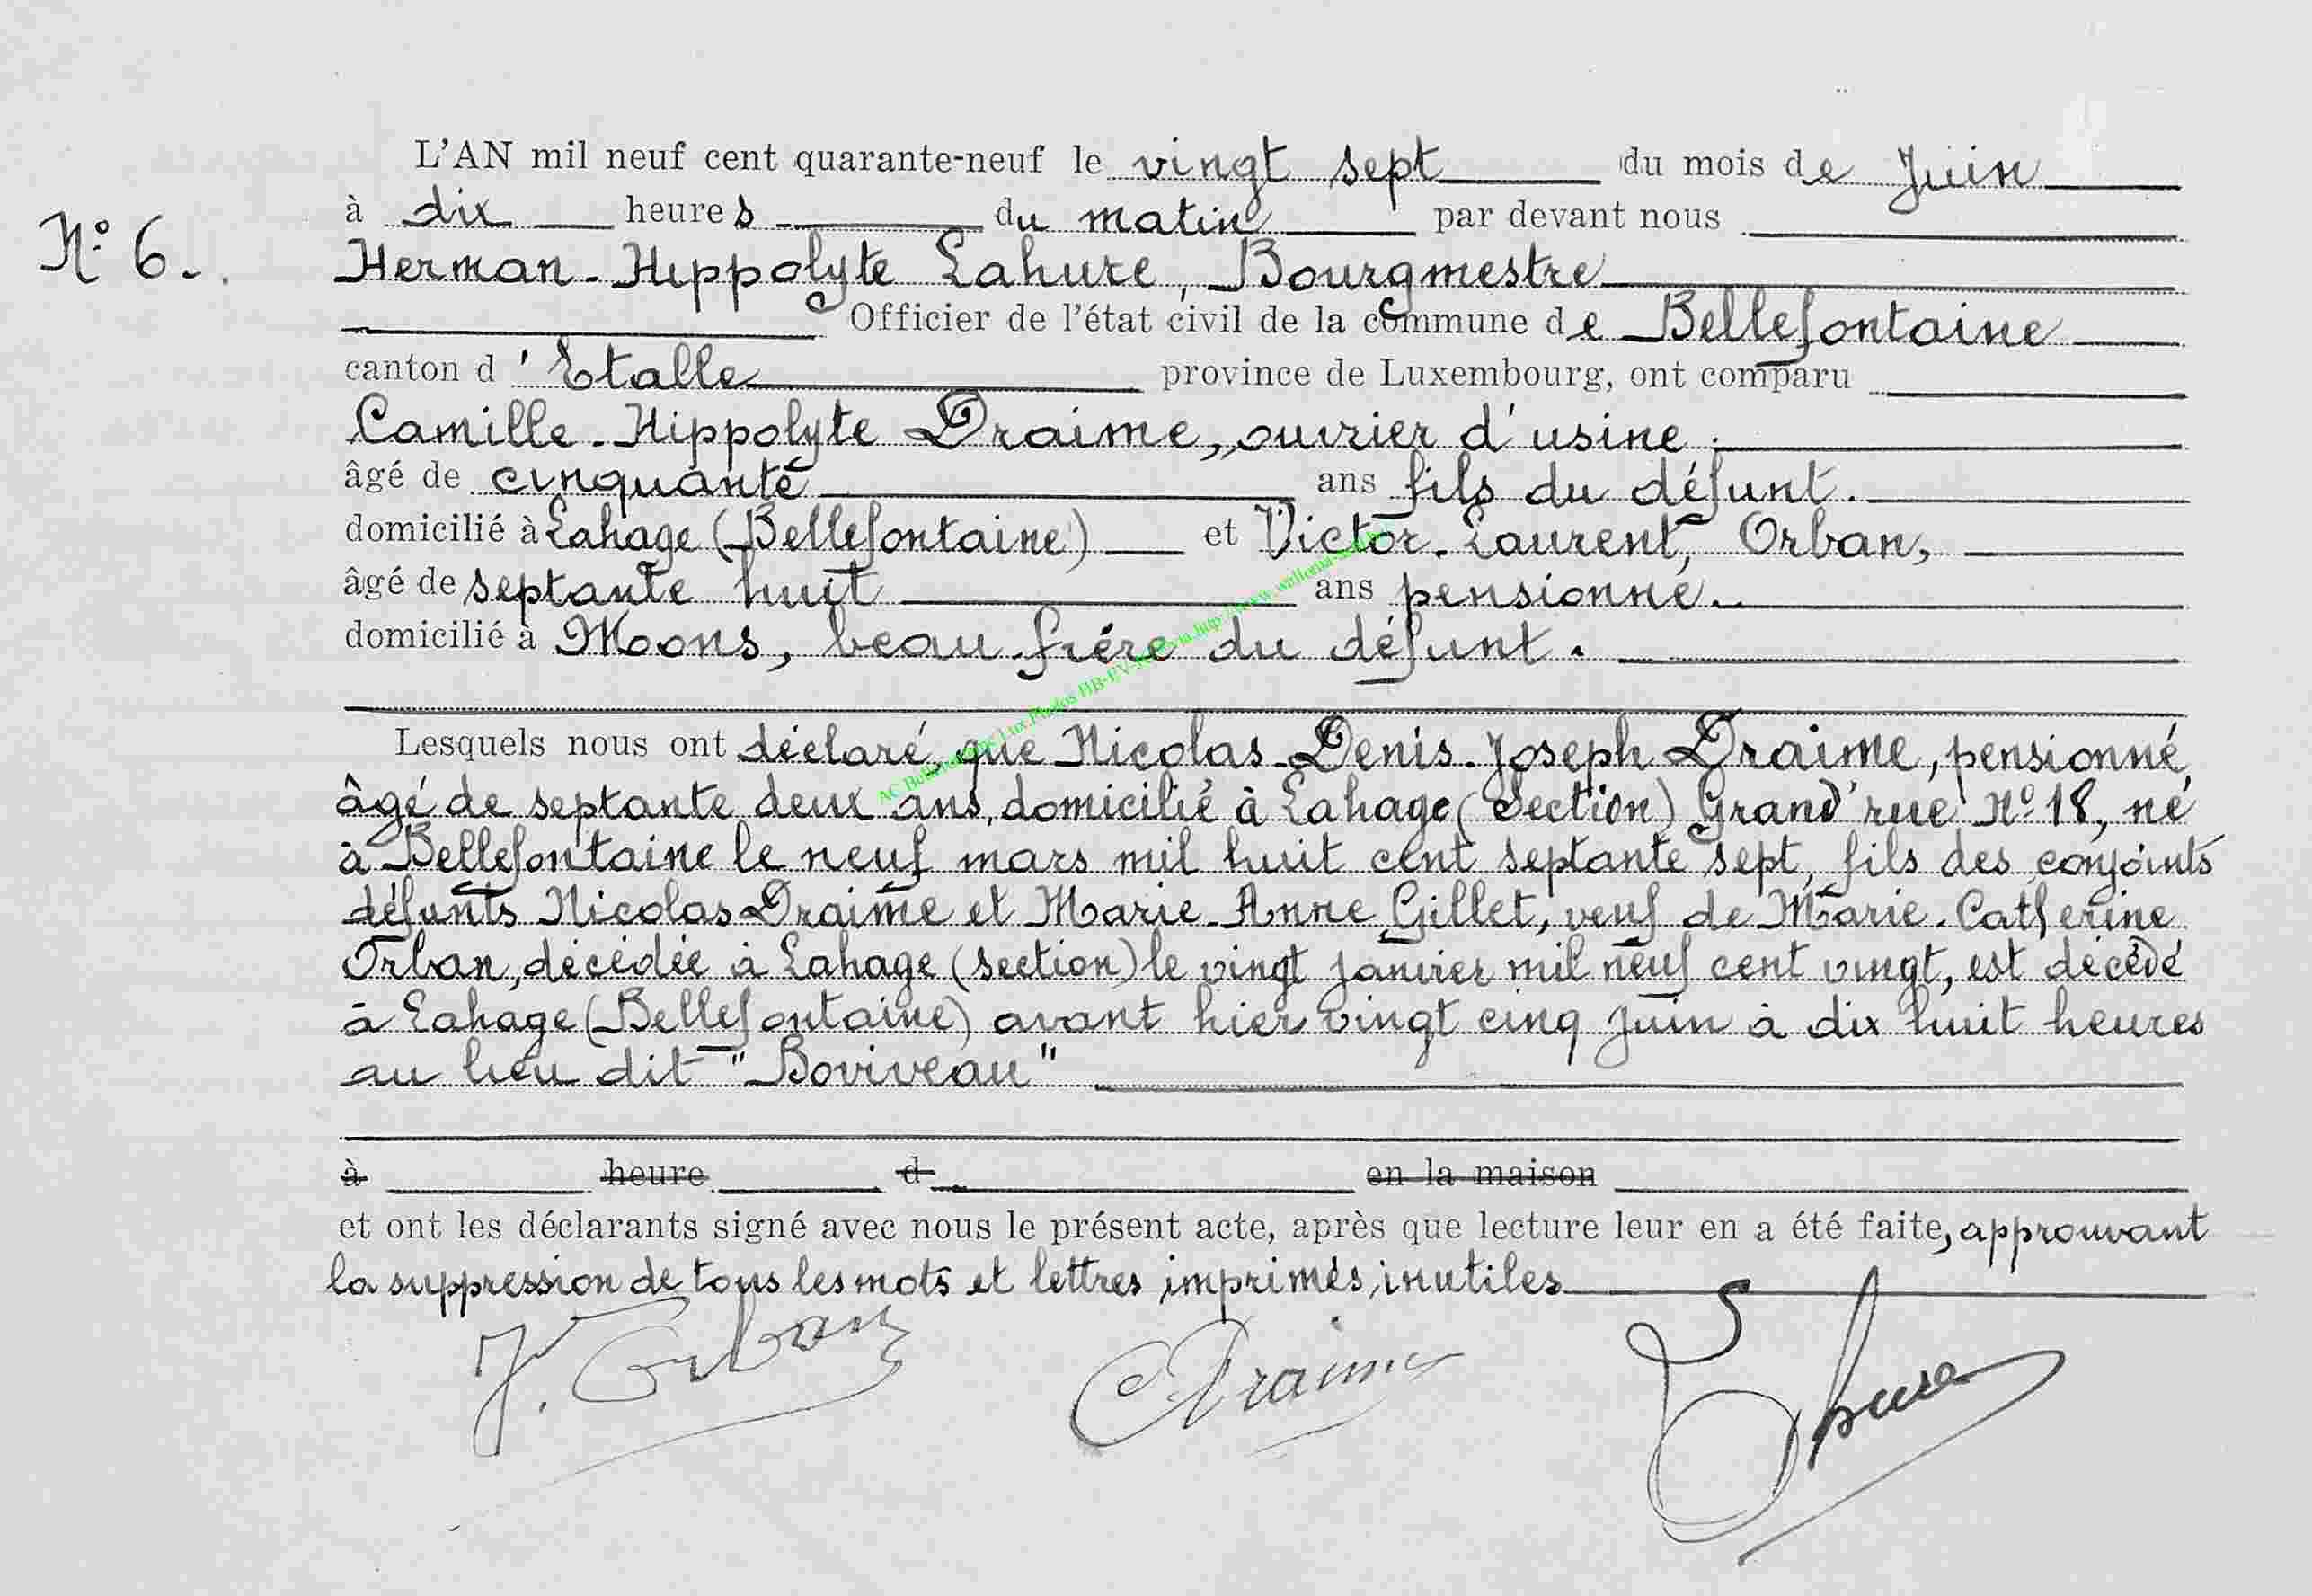 L'AN mil neuf cent quarante-neuf le vingt sept du mois de Juin
à dix heures du matin par devant nous
N° 6.
Herman-Hippolyte Lahure, Bourgmestre
Officier de l'état civil de la commune de Bellefontaine
canton d'Etalle province de Luxembourg, ont comparu
Camille-Hippolyte Draime, ouvrier d'usine.
âgé de cinquante ans fils du défunt.
domicilié à Lahage (Bellefontaine) et Victor-Laurent, Orban,
âgé de septante huit ans pensionné.
domicilié à Moons, beau-frère du défunt.
Lesquels nous ont déclaré, que Nicolas-Denis-Joseph Draime, pensionné,
âgé de septante deux ans, domicilié à Lahage (Section) Grand'rue N° 18, né
à Bellefontaine le neuf mars mil huit cent septante sept, fils des conjoints
défunts Nicolas Draime et Marie-Anne Gillet, veuf de Marie-Catherine
Orban, décédée à Lahage (section) le vingt janvier mil neuf cent vingt, est décédé
à Lahage (Bellefontaine) avant hier vingt cinq Juin à dix huit heures
au lieu dit "Boviveau"
à heure d en la maison
et ont les déclarants signé avec nous le présent acte, après que lecture leur en a été faite, approuvant
la suppression de tous les mots et lettres imprimés, inutiles
V. Orban CDraime Lahure